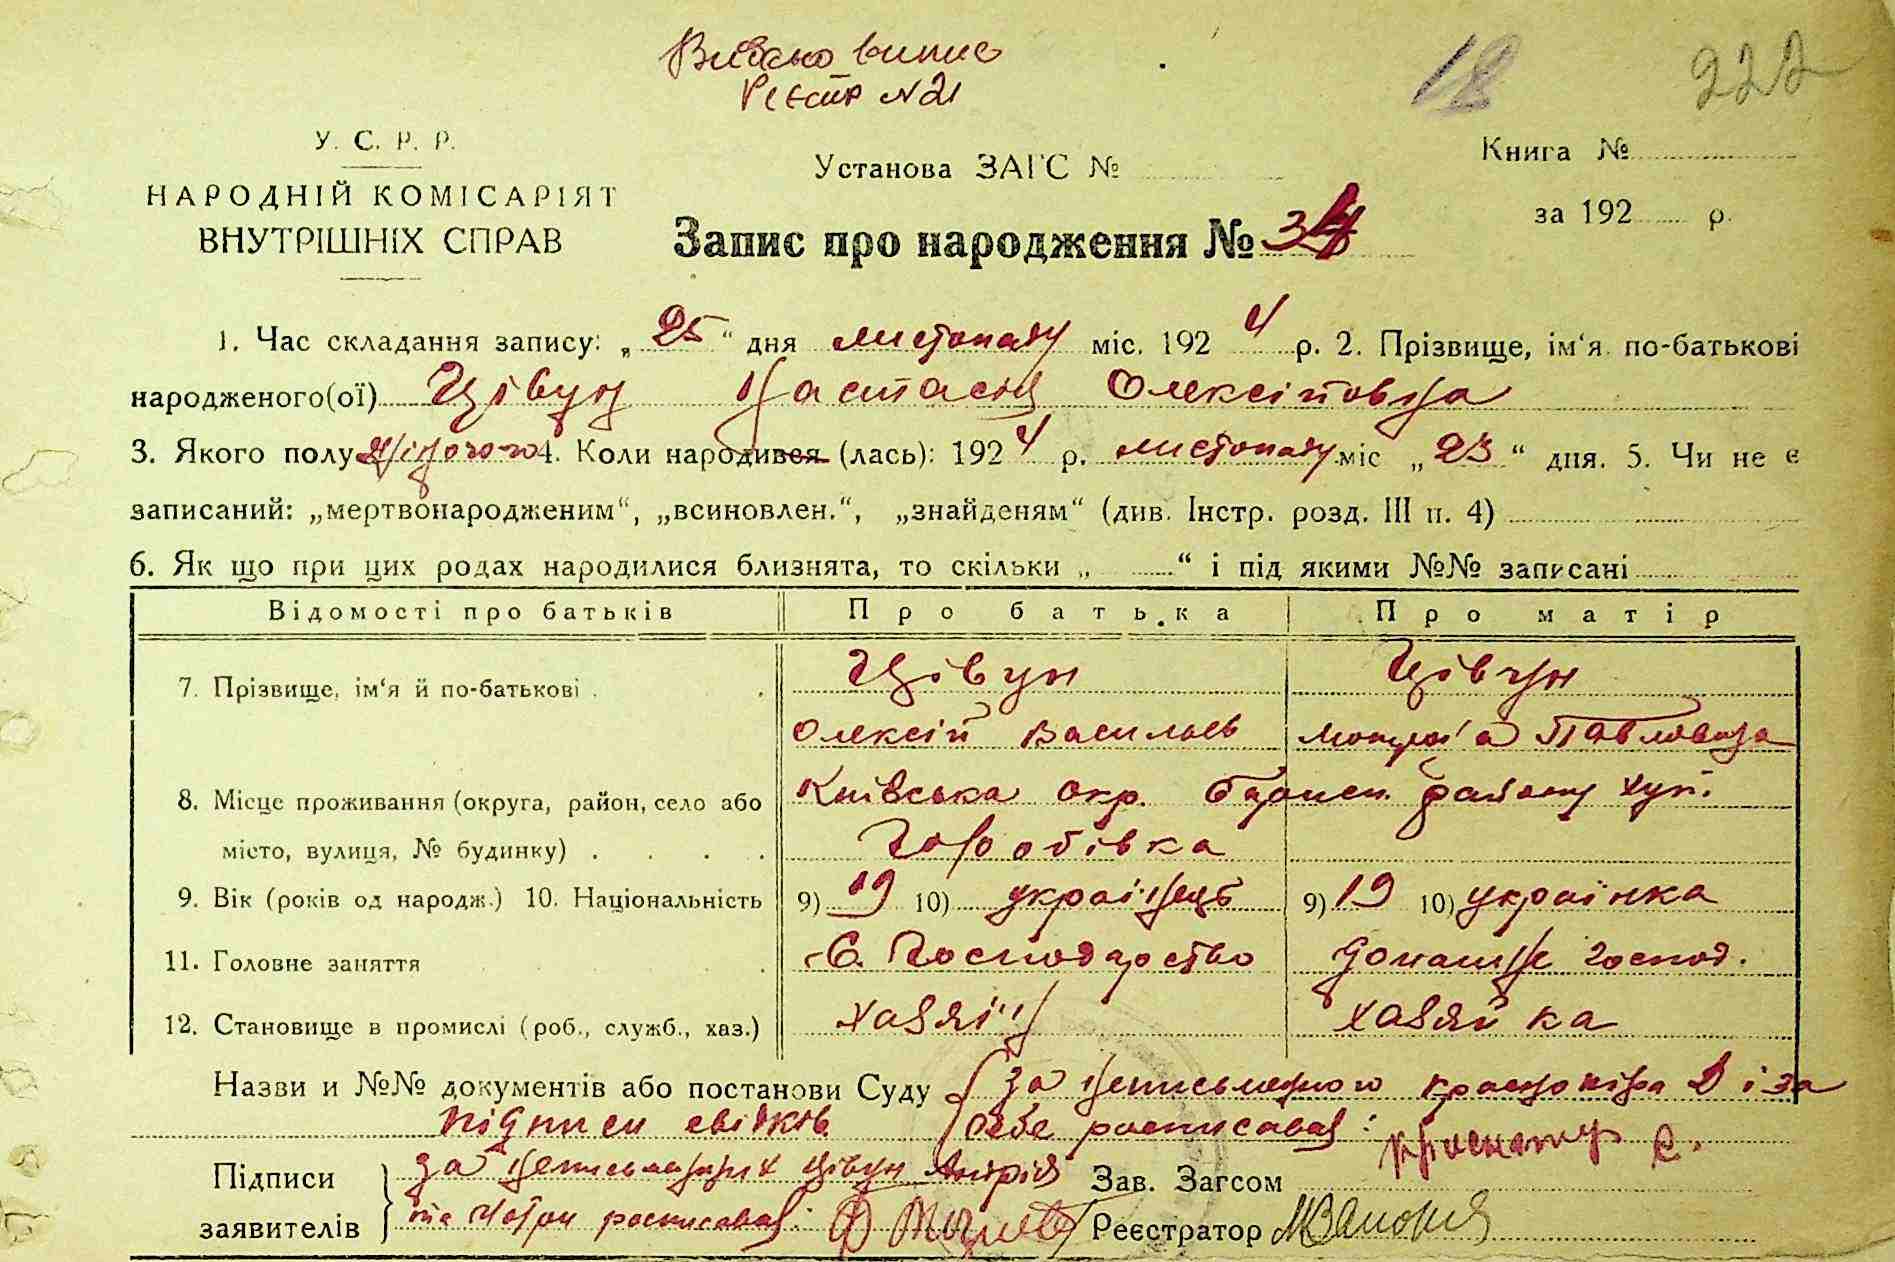 Видано випис
Реєстр №21
18 222
У. С. Р. Р.
НАРОДНІЙ КОМІСАРІЯТ
ВНУТРІШНІХ СПРАВ
Установа ЗАГС №
Книга №
за 192 р.
Запис про народження № 34
1. Час складання запису: „25“ дня листопаду міс. 1924 р. 2. Прізвище, ім‘я по-батькові
народженого(ої) Цівун Настасія Олексіївна
3. Якого полу жіночого 4. Коли народився (лась): 1924 р. листопаду міс „23“ дня. 5. Чи не є
записаний: „мертвонародженим“, „всиновлен.“, „знайденям“ (див. Інстр. розд. III п. 4)
6. Як що при цих родах народилися близнята, то скільки „ “ і під якими №№ записані
Відомості про батьків Про батька Про матір
7. Прізвище, ім‘я й по-батькові Цівун Цівун
Олексій Васильев Павловна
8. Місце проживання (округа, район, село або Київська окр. району хут.
місто, вулиця, № будинку) Горобівка
9. Вік (років од народж.) 10. Національність 9) 19 10) українець 9) 19 10) українка
11. Головне заняття С. Господарство домашнє господ.
12. Становище в промислі (роб., служб., хаз.) хазяїн хазяйка
Назви и №№ документів або постанови Суду за неписьменного і за
підписи свідків себе росписався:
Підписи за неписьменних Цівун Андрія Зав. Загсом
заявителів та росписався: Реєстратор